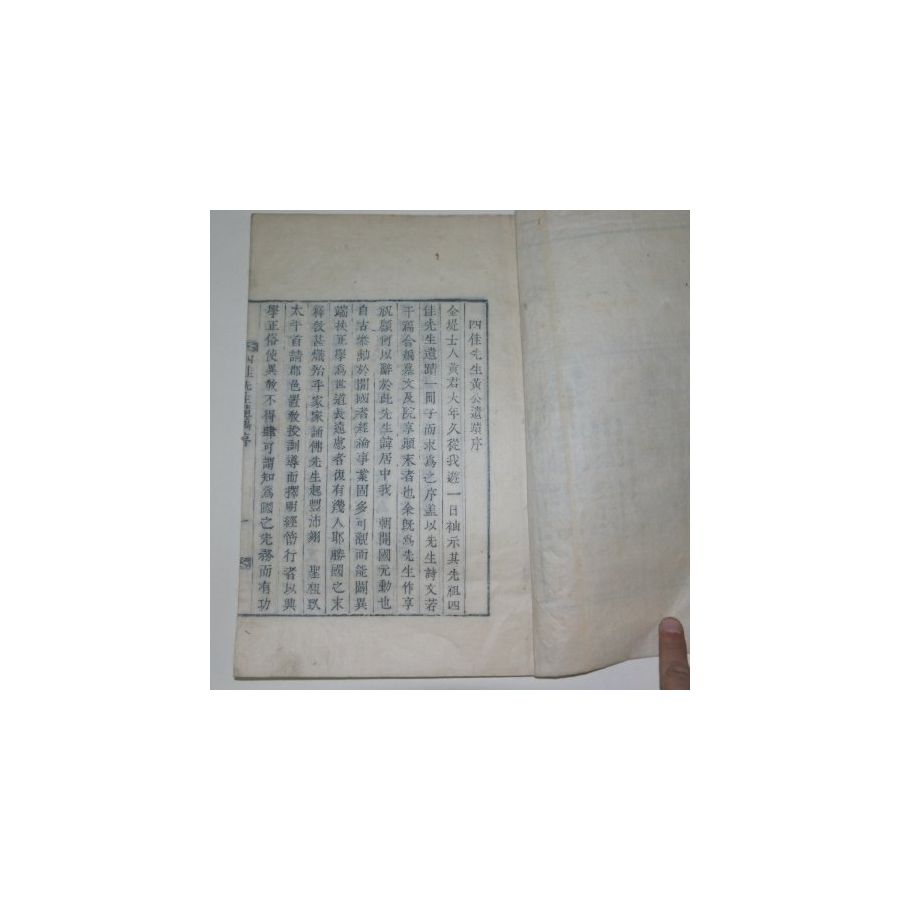 四佳先生黃公遺蹟序
金堤士人黃君大年久從我遊一日袖示其先祖四
佳先生遺蹟一冊子而求爲之序盖以先生詩文若
干篇合碣墓文及院享顚末者也余旣爲先生作享
祝顧何以辭於此先生諱居中我 朝開國元勳也
自古樂勳於開國者經論事業固多可觀而能闢異
端扶正學爲世道長遠慮者復有幾人耶勝國之末
釋敎甚熾殆乎家家誦佛先生起豐沛翊 聖祖
太平首請郡邑置敎授訓導而擇明經篤行者以興
學正俗使異敎不得肆可謂知爲國之先務而有功
四佳先生遺稿序